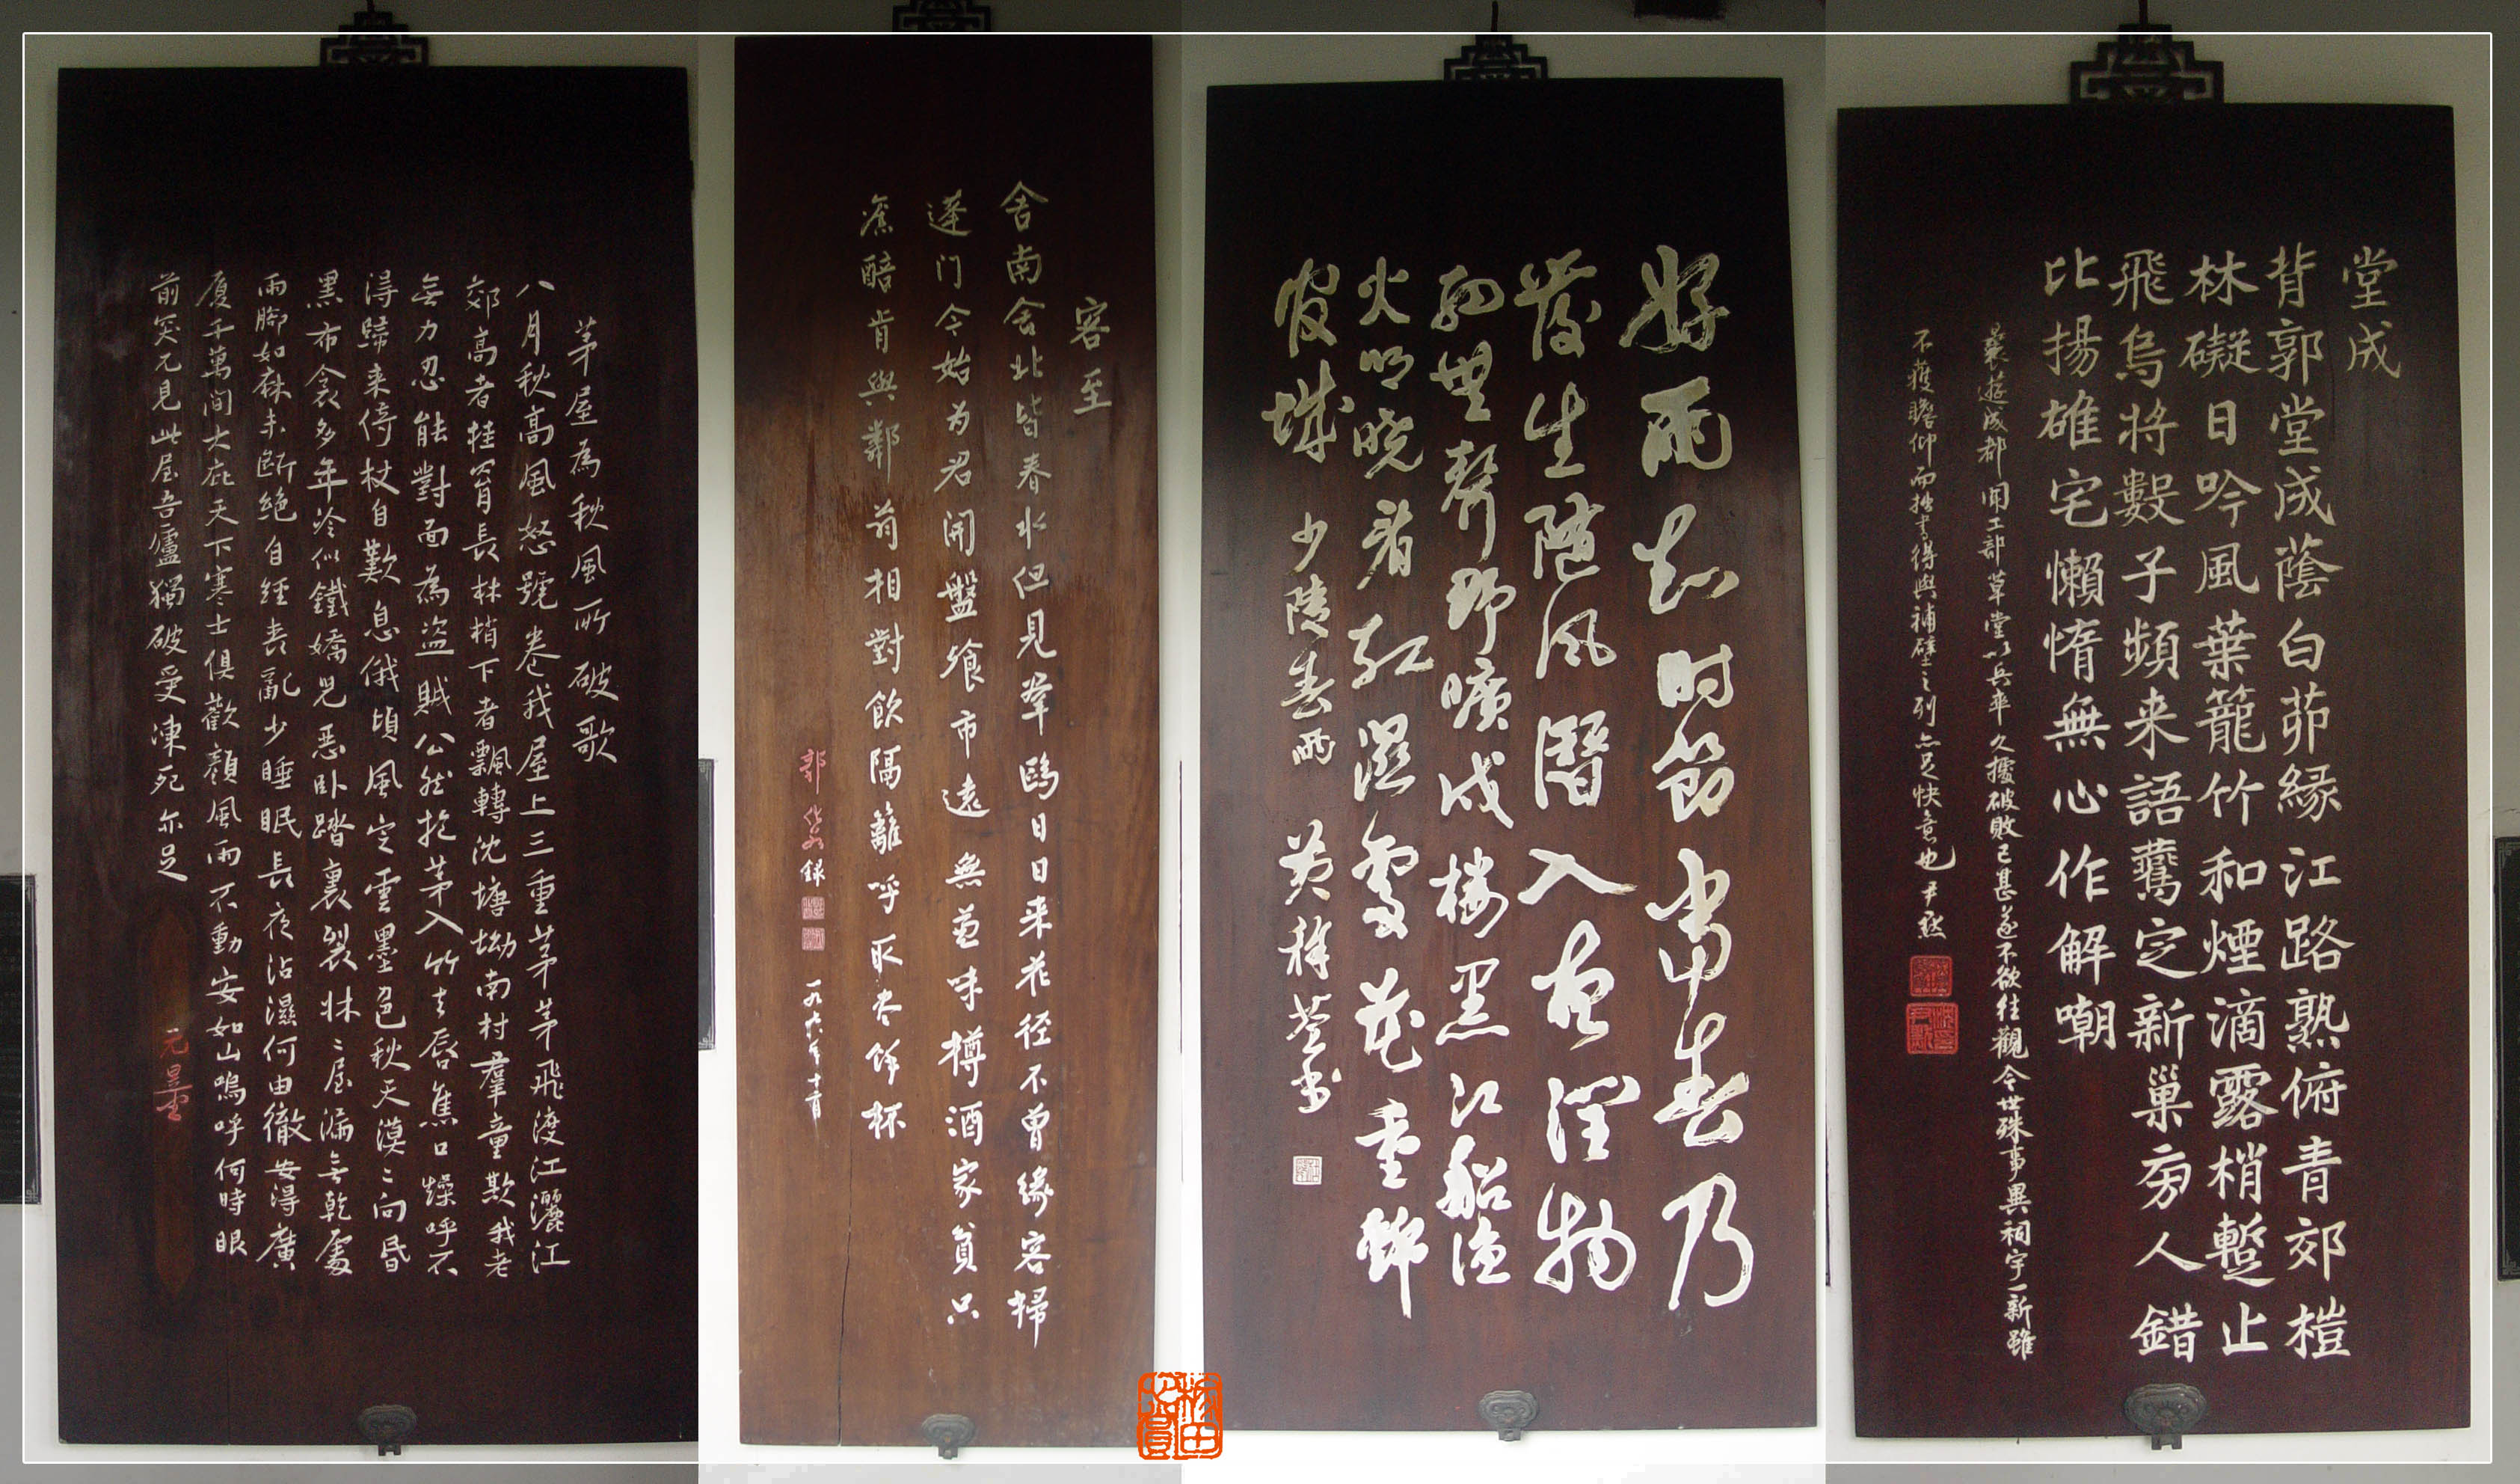 堂成
背郭堂成蔭白茆緣江路熟俯青郊榿
林礙日吟風葉籠竹和煙滴露梢暫止
飛烏將數子頻来語鷰定新巢旁人錯
比揚雄宅懶惰無心作解嘲
曩遊成都聞工部草堂以兵卒久擾破敗已甚遂不欲往觀今世殊事異祠宇一新雖
不獲瞻仰而拙書得與補壁之列亦足快意也尹默
好雨知时節當春乃
發生随风潛入夜潤物
細無聲野曠戍楼黑江船渔
火明曉看红濕處花重錦
官城 少陵春雨 黄稚荃书
客至
舍南舍北皆春水但見羣鷗日日来花径不曾緣客掃
蓬门今始为君開盤飧市遠無兼味樽酒家貧只
舊醅肯與鄰翁相對飲隔籬呼取尽馀杯
郭化若録
茅屋為秋風所破歌
八月秋高風怒號卷我屋上三重茅茅飛渡江灑江
郊高者挂罥長林梢下者飄轉沈塘坳南村羣童欺我老
无力忍能對面為盗賊公然抱茅入竹去唇焦口燥呼不
得歸来倚杖自歎息俄頃風定雲墨色秋天漠二向昏
黑布衾多年冷似鐵嬌兒恶卧踏裏裂牀二屋漏无乾處
雨脚如麻未斷絶自經喪亂少睡眠長夜沾濕何由徹安得廣
厦千萬間大庇天下寒士俱歡顏風雨不動安如山嗚呼何時眼
前突兀見此屋吾廬獨破受凍死亦足